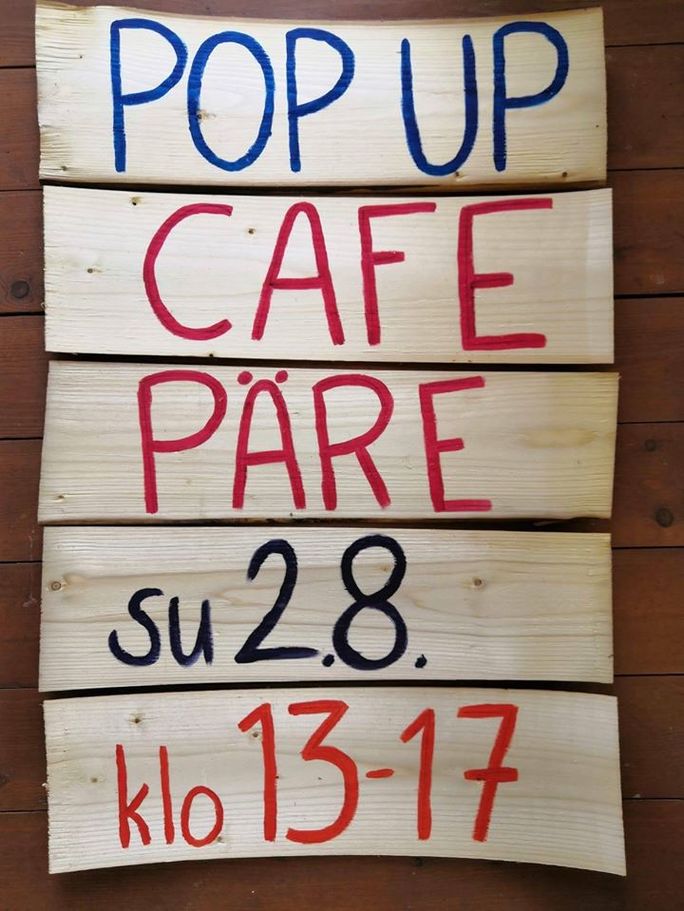 POP UP
CAFE
PÄRE
su 2.8.
klo 13-17